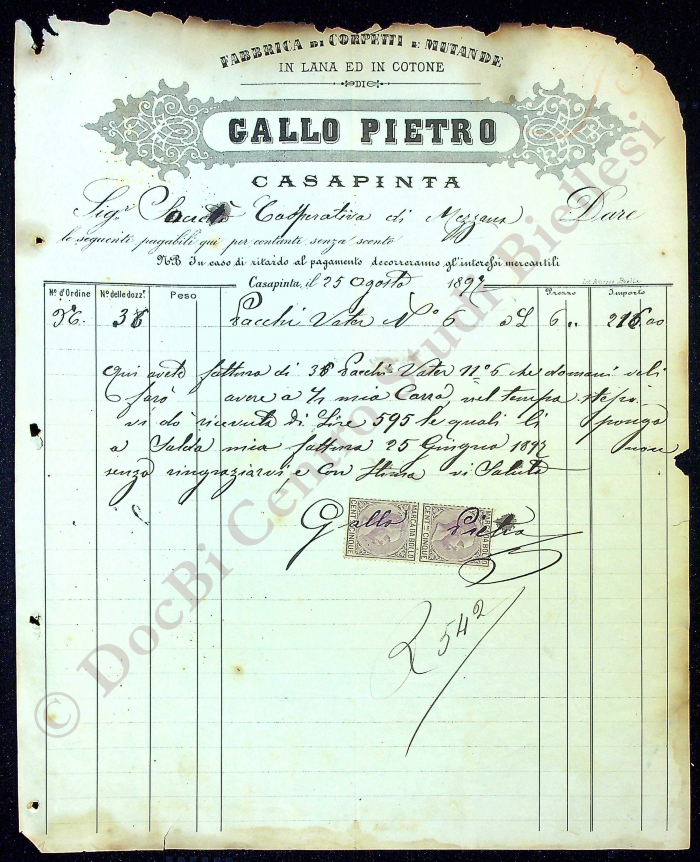 FABBRICA DI CORPETTI E MUTANDE
IN LANA ED IN COTONE
DI
GALLO PIETRO
CASAPINTA
Sig.r Società Cooperativa di Mezzana Dare
le seguenti pagabili qui per contanti senza sconto
NB. In caso di ritardo al pagamento decorreranno gl'interessi mercantili
Casapinta, il 25 Agosto 1897
N.o d'Ordine N.o delle dozz.e Peso Prezzo Importo
36 Pacchi Vater No 6 a L 6 " 216.00
Qui avete fattura di 36 Pacchi Vater No 6 che domani veli
farò avere a 1/2 mio Carro, nel tempo
vi dò ricevuta di Lire 595 le quali li
a Saldo mia fattura 25 Giugno 1897
senza ringraziarvi e con stima vi Saluto
Gallo Pietro
MARCA DA BOLLO
CENT. CINQUE
MARCA DA BOLLO
CENT. CINQUE
542
© DocBi Centro Studi Biellesi